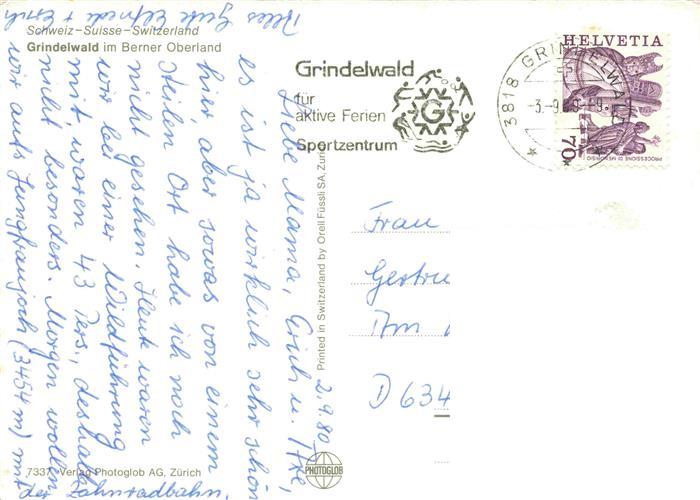 Schweiz-Suisse-Switzerland
Grindelwald im Berner Oberland
Grindelwald
für
aktive Ferien
Sportzentrum
3818 GRINDELWALD
-3.-9.80-9
HELVETIA
70
PROCESSIONE DI MENDRISIO
2.9.80
Liebe Mama, Erich u.
es ist ja wirklich sehr schön
hier aber sowas von einem
steilen Ort habe ich noch
nicht gesehen. Heute waren
wir bei einer Wildführung
mit, waren 43 Pers., deshalb
nicht besonders. Morgen wollen
wir aufs Jungfraujoch (3454 m) mit
der Zahnradbahn.
Alles Gute Elfriede + Erich
Frau
Gertru
Am
D 634
Printed in Switzerland by Orell Füssli SA, Zürich
7337 Verlag Photoglob AG, Zürich
PHOTOGLOB